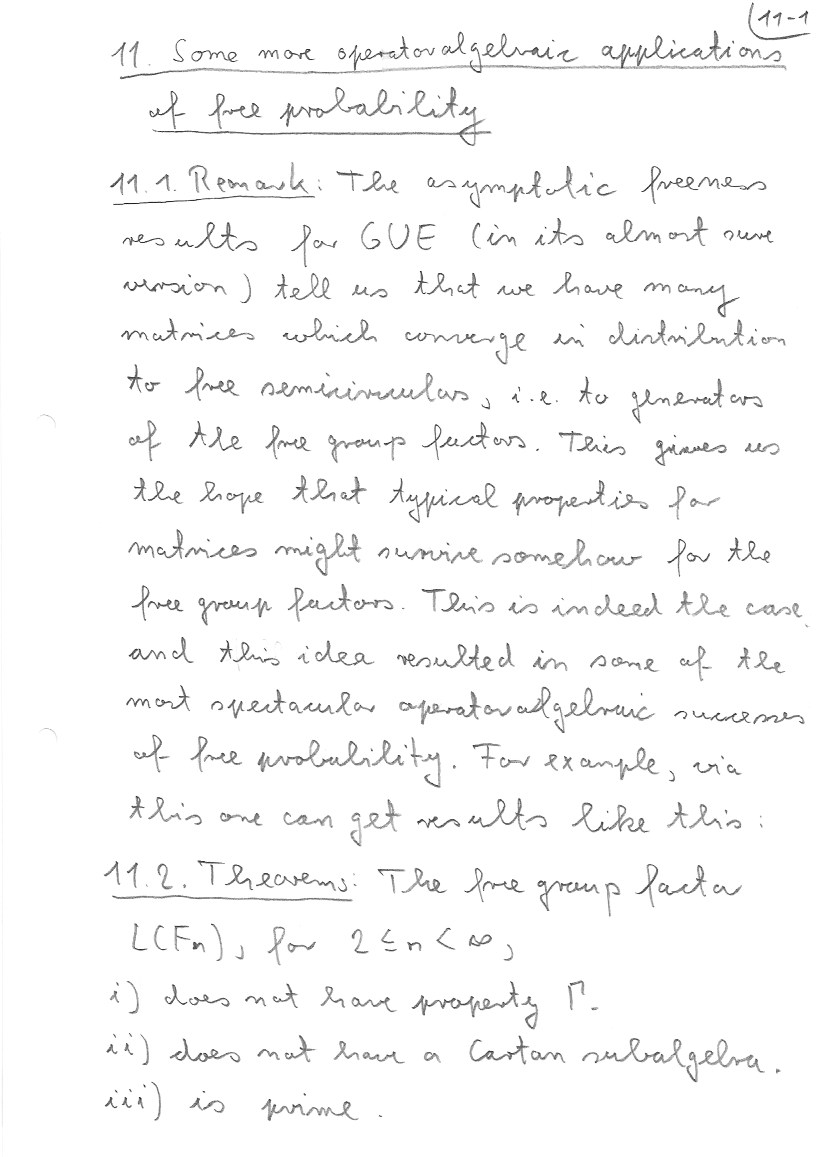 11-1
11. Some more operatoralgebraic applications
of free probability
11.1. Remark: The asymptotic freeness
results for GUE (in its almost sure
version) tell us that we have many
matrices which converge in distribution
to free semicirculars, i.e. to generators
of the free group factors. This gives us
the hope that typical properties for
matrices might survive somehow for the
free group factors. This is indeed the case
and this idea resulted in some of the
most spectacular operatoralgebraic successes
of free probability. For example, via
this one can get results like this:
11.2. Theorems: The free group factor
L(Fn), for 2 ≤ n < ∞,
i) does not have property Γ.
ii) does not have a Cartan subalgebra.
iii) is prime.